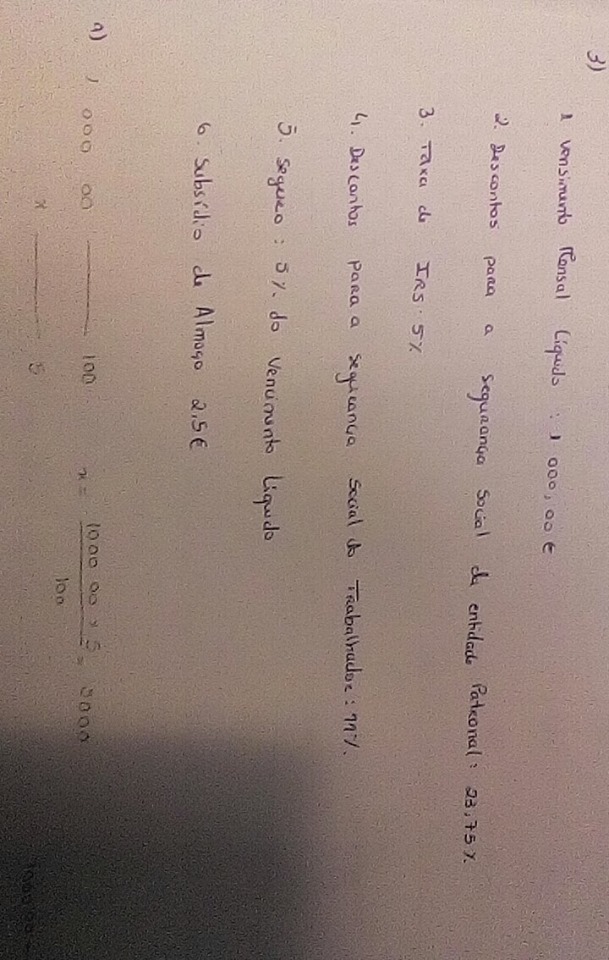 3)
1 Vensimento Mensal Líquido : 1 000,00 €
2. Descontos para a Segurança Social da entidade Patronal : 23,75 %.
3. Taxa de IRS 5%
4. Descontos para a Segurança Social do Trabalhador : 11%.
5. Seguro : 5 %. do Vencimento Líquido
6. Subsídio de Almoço 2,5 €
a) 1 000 00 ——— 100 x = 1000 00 x 5 = 5000
100
x ——— 5
1000,00